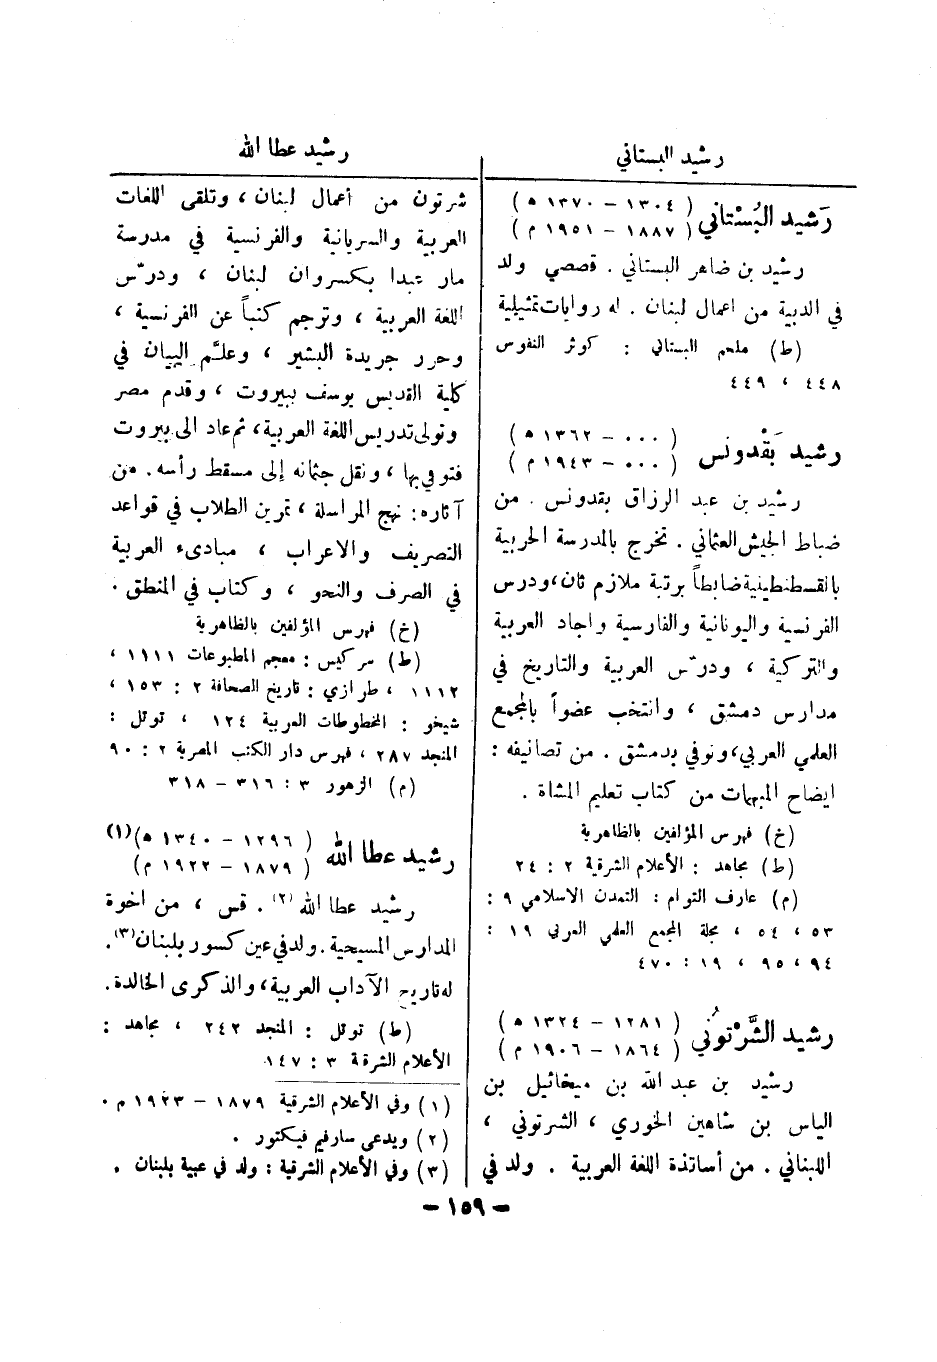 رشيد البستاني
رَشيد البُسْتاني
( ١٣٠٤ - ١٣٧٠ ه )
( ١٨٨٧ - ١٩٥١ م )
رشيد بن ضاهر البستاني . قصصي ولد
في الدبية من اعمال لبنان . له روايات تمثيلية
(ط) ملحم البستاني : كوثر النفوس
٤٤٨ ، ٤٤٩
رشيد بَقْدونس
( ٠٠٠ - ١٣٦٢ ه )
( ٠٠٠ - ١٩٤٣ م )
رشيد بن عبد الرزاق بقدونس . من
ضباط الجيش العثماني . تخرج بالمدرسة الحربية
بالقسطنطينية ضابطاً برتبة ملازم ثان ، ودرس
الفرنسية واليونانية والفارسية واجاد العربية
والتركية ، ودرّس العربية والتاريخ في
مدارس دمشق ، وانتخب عضواً بالمجمع
العلمي العربي ، وتوفي بدمشق . من تصانيفه :
ايضاح المبهمات من كتاب تعليم المشاة .
(خ) فهرس المؤلفين بالظاهرية
(ط) مجاهد : الأعلام الشرقية ٢ : ٢٤
(م) عارف التوام : التمدن الاسلامي ٩ :
٥٣ ، ٥٤ ، مجلة المجمع العلمي العربي ١٩ :
٩٤ ، ٩٥ ، ١٩ : ٤٧٠
رشيد الشَّرْتُوني
( ١٢٨١ - ١٣٢٤ ه )
( ١٨٦٤ - ١٩٠٦ م )
رشيد بن عبد الله بن ميخائيل بن
الياس بن شاهين الخوري ، الشرتوني ،
اللبناني . من أساتذة اللغة العربية . ولد في
رشيد عطا الله
شرتون من أعمال لبنان ، وتلقى اللغات
العربية والسريانية والفرنسية في مدرسة
مار عبدا بكسروان لبنان ، ودرّس
اللغة العربية ، وترجم كتباً عن الفرنسية ،
وحرر جريدة البشير ، وعلّم البيان في
كلية القديس يوسف ببيروت ، وقدم مصر
وتولى تدريس اللغة العربية ، ثم عاد الى بيروت
فتوفي بها ، ونقل جثمانه إلى مسقط رأسه . من
آثاره : نهج المراسلة ، تمرين الطلاب في قواعد
التصريف والاعراب ، مبادىء العربية
في الصرف والنحو ، وكتاب في المنطق .
(خ) فهرس المؤلفين بالظاهرية
(ط) سركيس : معجم المطبوعات ١١١١ ،
١١١٢ ، طرازي : تاريخ الصحافة ٢ : ١٥٣ ،
شيخو : المخطوطات العربية ١٢٤ ، توتل :
المنجد ٢٨٧ ، فهرس دار الكتب المصرية ٢ : ٩٠
(م) الزهور ٣ : ٣١٦ - ٣١٨
رشيد عطا الله
( ١٢٩٦ - ١٣٤٠ ه )(١)
( ١٨٧٩ - ١٩٢٢ م )
رشيد عطا الله (٢) . قس ، من اخوة
المدارس المسيحية . ولد في عين كسور بلبنان(٣) .
له تاريخ الآداب العربية ، والذكرى الخالدة .
(ط) توتل : المنجد ٢٤٢ ، مجاهد :
الأعلام الشرقة ٣ : ١٤٧
(١) وفي الأعلام الشرقية ١٨٧٩ - ١٩٢٣ م .
(٢) ويدعى سارفيم فيكتور .
(٣) وفي الأعلام الشرقية : ولد في عبية بلبنان .
- ١٥٩ -